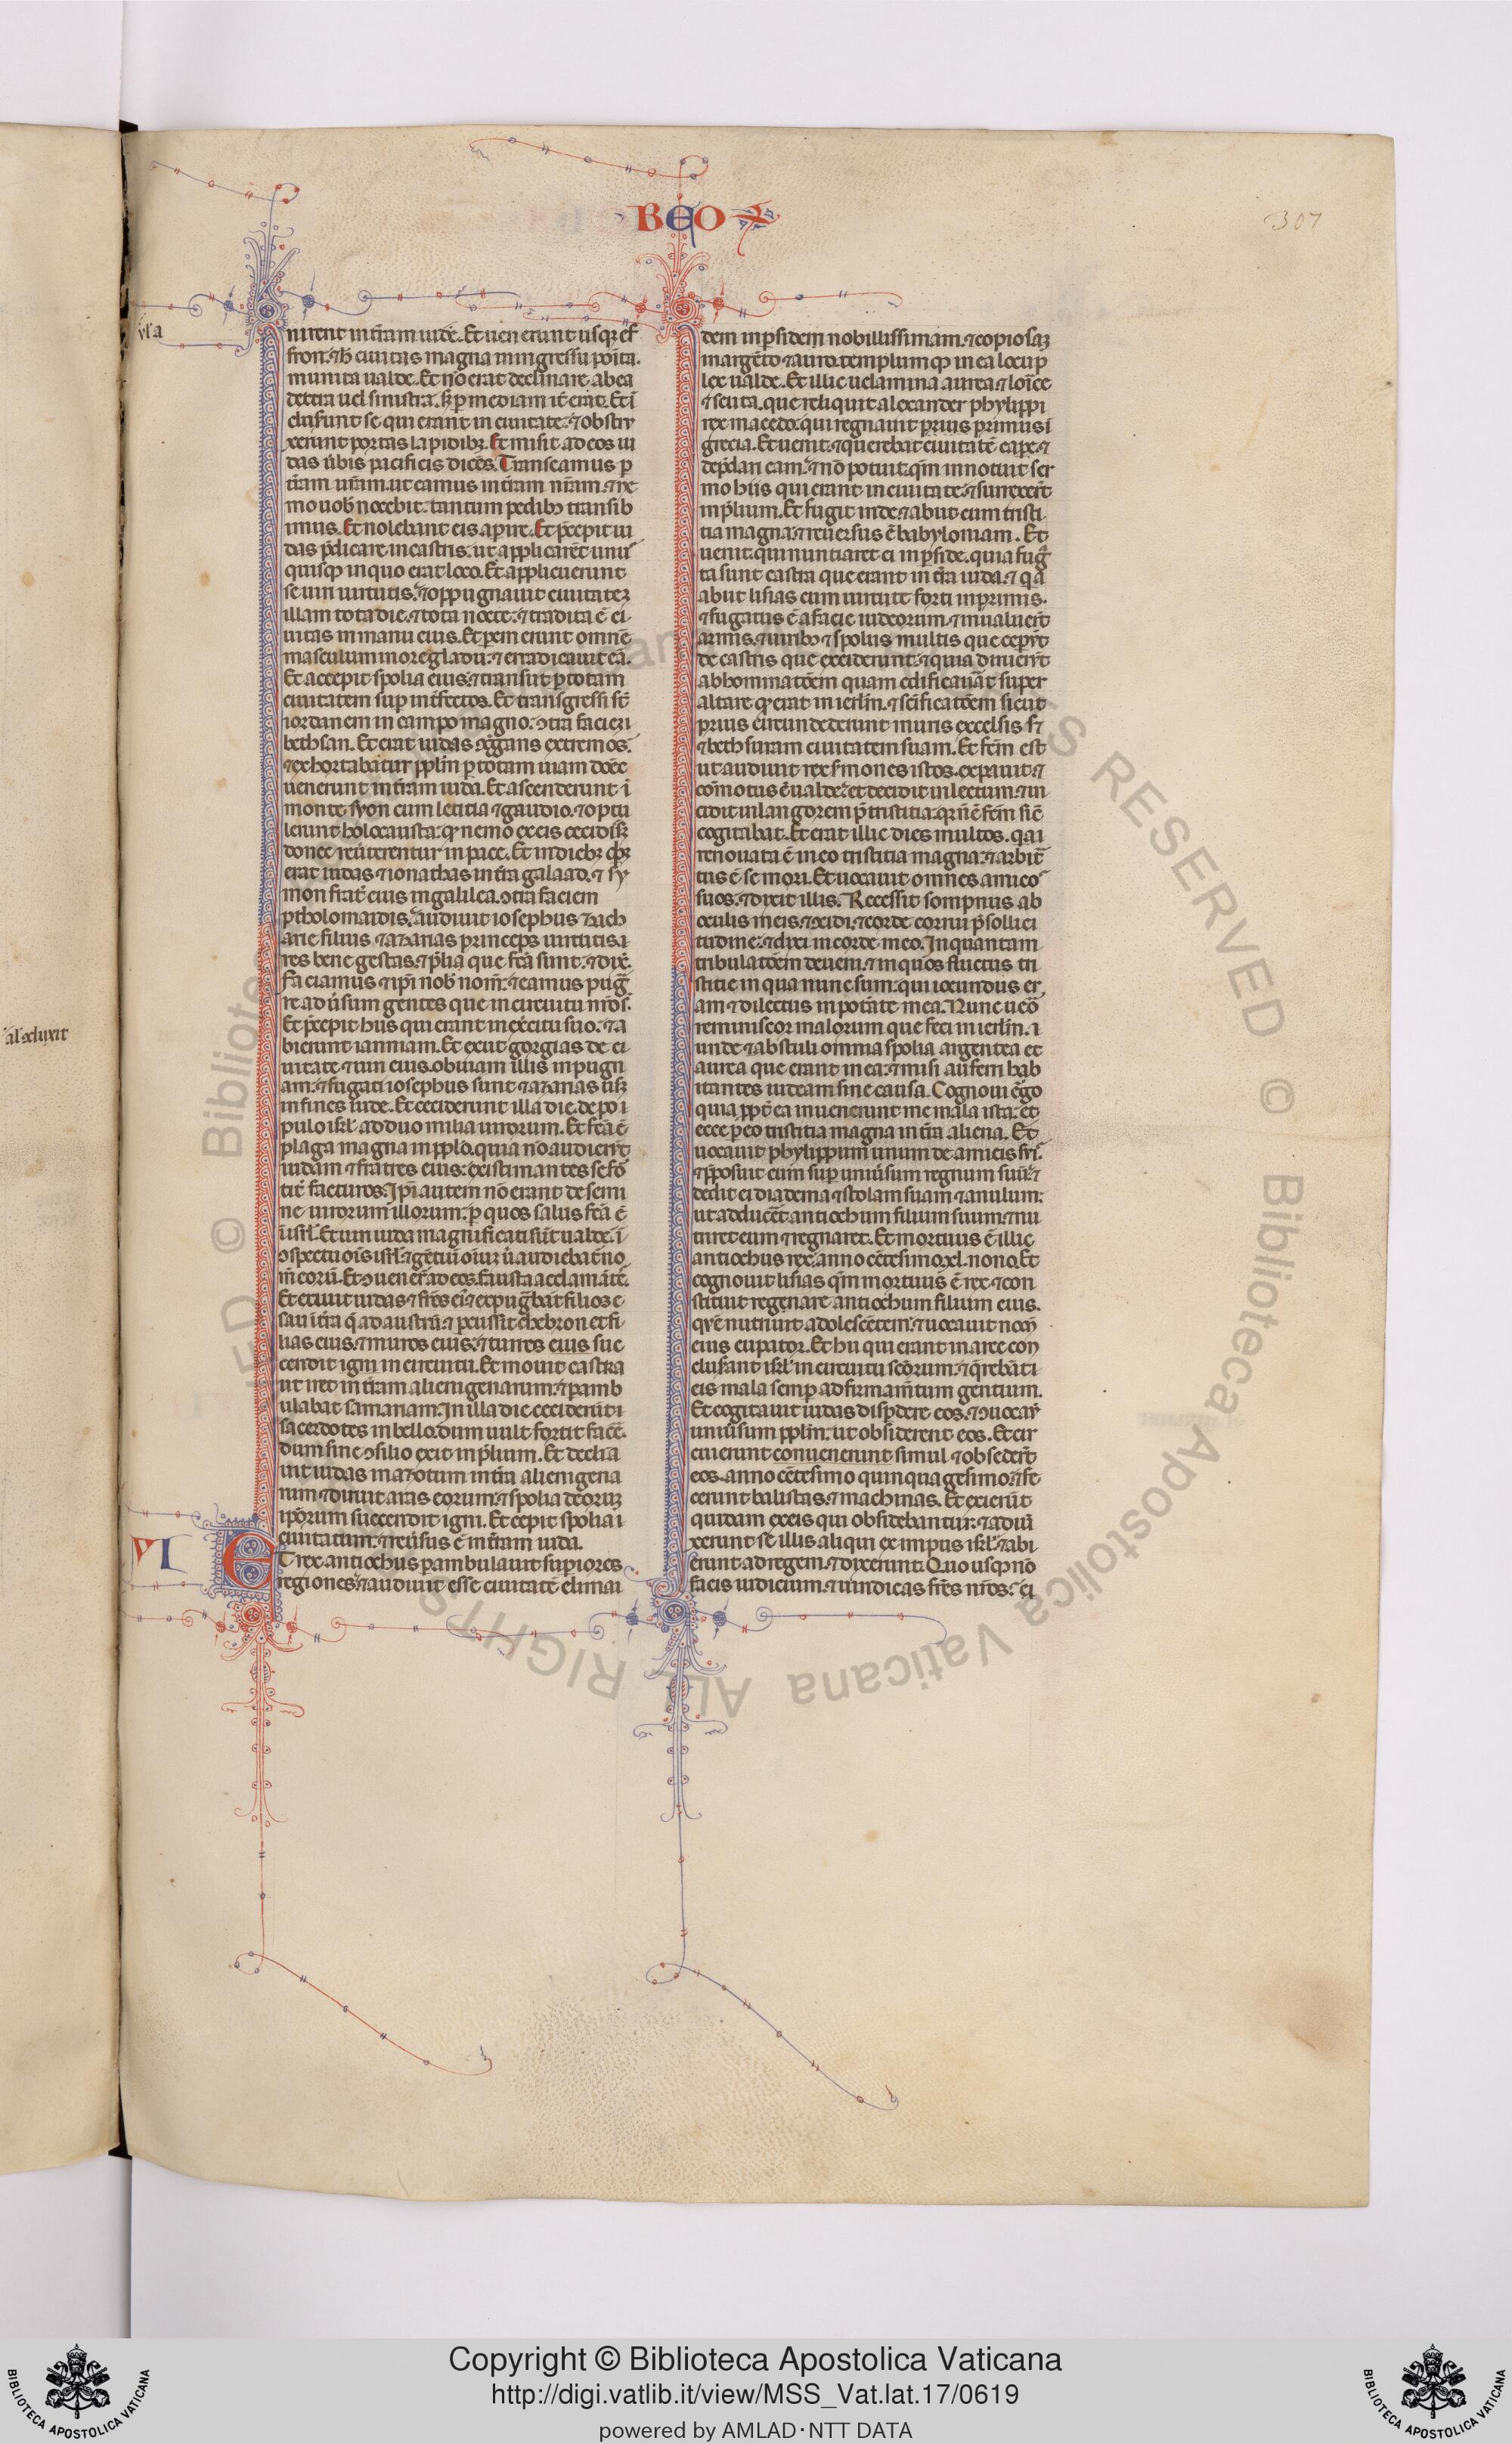 BEO
307
vła
nirent in t̃ram iude. Et uenerunt usq; ef
fron. ⁊ h̃ ciuitas magna in ingressu po̾ita.
munita ualde. Et nõ erat declinare ab ea
dextra uel sinistra. s; ꝑ mediam it̃ erat. Et ĩ
clusunt se qui erant in ciuitate. ⁊ obstru
xerunt portas lapidib;. Et misit ad eos iu
das ũbis pacificis dicẽs. Transeamus ꝑ
t̃ram ur̃am. ut eamus in t̃ram nr̃am. ⁊ ne
mo uob̾ nocebit. tantum pedib; transib
imus. Et nolebant eis aꝑire. Et p̃cepit iu
das p̃dicare in castris. ut applicarẽt unus
quisq; in quo erat loco. Et applicuerunt
se uiri uirtutis. ⁊ oppugnauit ciuitatez
illam tota die. ⁊ tota nocte. ⁊ tradita ẽ ci
uitas in manu eius. Et ꝑemerunt omnẽ
masculum in ore gladii. ⁊ erradicauit eã.
Et accepit spolia eius. ⁊ transiit ꝑ totam
ciuitatem sup int̃fectos. Et transgressi st̃
iordanem in campo magno. ↄtra faciez
bethsan. Et erat iudas ↄg̃gans extremos.
⁊ exhortabatur pplm̃ ꝑ totam uiam donec
uenerunt in t̃ram iuda. Et ascenderunt ĩ
monte syon cum letitia ⁊ gaudio. ⁊ optu
lerunt holocausta. q̾ nemo ex eis cecidiss;
donec reũterentur in pace. Et in dieb; q̾b;
erat iudas ⁊ ionathas in t̃ra galaad. ⁊ sy
mon frat̃ eius in galilea. ↄtra faciem
ptholomaidis. audiuit iosephus ⁊ zach
arie filius ⁊ azarias princeps uirtutis.
res bene gestas. ⁊ p̃lia que fc̃a sunt. ⁊ dix̃.
Faciamus ⁊ ip̃i nob̾ nom̃. ⁊ eamus pug̃
re adũsum gentes que in circuitu nr̃o s̃.
Et p̃cepit hiis qui erant in ex̃citu suo. ⁊ a
bierunt iamniam. Et exiit gorgias de ci
uitate ⁊ uiri eius. obuiam illis in pugn
am. ⁊ fugati iosephus sunt ⁊ azarias us;
in fines iude. Et ceciderunt illa die de po
pulo isrl̃ ad duo milia uirorum. Et fc̃a ẽ
plaga magna in pplo. quia nõ audierũt
iudam ⁊ fratres eius. existimantes se for
tit̃ facturos. Ip̃i autem nõ erant de semi
ne uirorum illorum. ꝑ quos salus fc̃a ẽ
ĩ isrl̃. Et uiri iuda magnificati sũt ualde. ĩ
ↄspectu oĩs isrl̃. ⁊ gẽtiũ oĩuz ũ audiebat̃ no
m̃ eorũ. Et ↄuener̃ ad eos. fausta acclamãtẽ.
Et exiuit iudas ⁊ fr̃es ei᾽ ⁊ expug̃bãt filios e
sau ĩ t̃ra q̃ ad austrũ. ⁊ ꝑcussit chebron et fi
lias eius. ⁊ muros eius. ⁊ turres eius suc
cendit igni in circuitu. Et mouit castra
ut iret in t̃ram alienigenarum. ⁊ ꝑamb
ulabat samariam. In illa die ceciderũt
sacerdotes in bello. dum uult fortit̃ facẽ.
dum sine ↄsilio exit in p̃lium. Et declia
uit iudas in azotum in t̃ra alienigena
rum. ⁊ diruit aras eorum. ⁊ spolia deoruz
ip̃orum succendit igni. Et cepit spolia
ciuitatum. ⁊ reũsus ẽ in t̃ram iuda.
VI
ET rex antiochus ꝑambulauit suꝑiores
regiones. ⁊ audiuit esse ciuitatẽ elimai
dem in ꝑsidem nobilissimam. ⁊ copiosaz
in argẽto ⁊ auro. templum q̾ in ea locup
lex ualde. Et illic uelamina aurea. ⁊ loricę
⁊ scuta. que reliquit alexander phylippi
rex macedo. qui regnauit prius primus ĩ
grecia. Et uenit. ⁊ querebat ciuitatẽ caꝑe. ⁊
dep̃dari eam. ⁊ nõ potuit. qm̃ innotuit ser
mo hiis qui erant in ciuitate. ⁊ surrexer̃t
in p̃lium. Et fugit inde. ⁊ abiit cum tristi
tia magna. ⁊ reuersus ẽ babyloniam. Et
uenit. qui nuntiaret ei in ꝑside. quia fug̃
ta sunt castra que erant in t̃ra iuda. ⁊ q̾a
abiit lisias cum uirtute forti in primis.
⁊ fugatus ẽ a facie iudeorum. ⁊ inualuerũt
armis. ⁊ uirib; ⁊ spoliis multis que ceper̃t
de castris que exciderunt. ⁊ quia diruer̃t
abhominatõem quam edificauãt super
altare q̾ erat in ierl̃m. ⁊ sc̃ificatõem sicut
prius circundederunt muris excelsis. s; ⁊
⁊ bethsuram ciuitatem suam. Et fc̃m est
ut audiuit rex s̃mones istos. expauit. ⁊
cõmotus ẽ ualde. et decidit in lectum. ⁊ in
cidit in langorem p̃ tristitia. q̾ nõ ẽ fc̃m sic̃
cogitabat. Et erat illic dies multos. q̾a
renouata ẽ in eo tristitia magna. ⁊ arbit̃
tus ẽ se mori. Et uocauit omnes amicos
suos. ⁊ dixit illis. Recessit sompnus ab
oculis meis. ⁊ ↄcidi. ⁊ corde corrui p̃ sollici
tudine. ⁊ dixi in corde meo. In quantam
tribulatõem deueni. ⁊ in quos fluctus tri
stitie in qua nunc sum. qui iocundus er
am ⁊ dilectus in potãte mea. Nunc uero
reminiscor malorum que feci in ierl̃m.
unde ⁊ abstuli omnia spolia argentea et
aurea que erant in ea. ⁊ misi auferri hab
itantes iudeam sine causa. Cognoui ẽgo
quia ppt̃ea inuenerunt me mala ista. et
ecce ꝑeo tristitia magna in t̃ra aliena. Et
uocauit phylippum unum de amicis suis.
⁊ p̃posuit eum sup uniũsum regnum suũ. ⁊
dedit ei diadema ⁊ stolam suam ⁊ anulum.
ut adducẽt antiochum filium suum. ⁊ nu
triret eum ⁊ regnaret. Et mortuus ẽ illic
antiochus rex. anno cẽtesimo. xl. nono. Et
cognouit lisias qm̃ mortuus ẽ rex. ⁊ con
stituit regenare antiochum filium eius.
quẽ nutriuit adolescẽtem. ⁊ uocauit nom̃
eius eupator. Et hii qui erant in arce con
clusant isrl̃ in circuitu sc̃orum. ⁊ q̃rebãt
eis mala semꝑ ad firmam̃tum gentium.
Et cogitauit iudas disꝑdere eos. ⁊ ↄuocau̾
uniũsum pplm̃. ut obsiderent eos. Et cir
cuierunt conuenerunt simul ⁊ obseder̃t
eos. anno cẽtesimo quinquagesimo. ⁊ fe
cerunt balistas. ⁊ machinas. Et exierũt
quidam ex eis qui obsidebantur. ⁊ adiũ
xerunt se illis aliqui ex impiis isrl̃. ⁊ abi
erunt ad regem. ⁊ dixerunt. Quousq; nõ
facis iudicium. ⁊ uindicas fr̃es nr̃os. ei
Copyright © Biblioteca Apostolica Vaticana
http://digi.vatlib.it/view/MSS_Vat.lat.17/0619
powered by AMLAD·NTT DATA
BIBLIOTECA APOSTOLICA VATICANA
BIBLIOTECA APOSTOLICA VATICANA